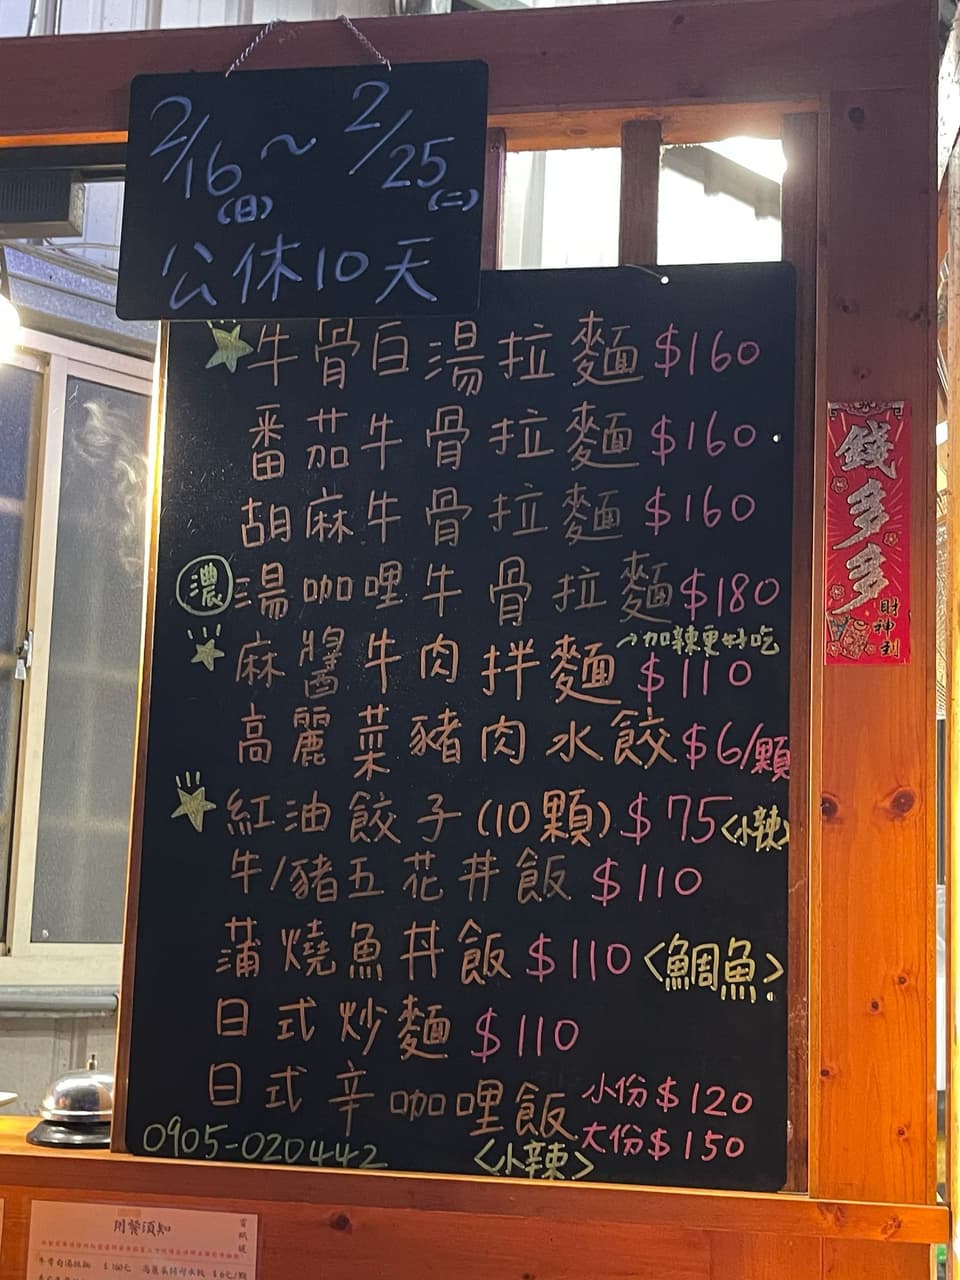 2/16(日)～2/25(二)
公休10天
牛骨白湯拉麵 $160
番茄牛骨拉麵 $160
胡麻牛骨拉麵 $160
濃 湯咖哩牛骨拉麵 $180
麻醬牛肉拌麵 $110 →加辣更好吃
高麗菜豬肉水餃 $6/顆
紅油餃子(10顆) $75 <小辣>
牛/豬五花丼飯 $110
蒲燒魚丼飯 $110 <鯛魚>
日式炒麵 $110
日式辛咖哩飯 小份$120
<小辣> 大份$150
0905-020442
錢多多
財神到
用餐須知